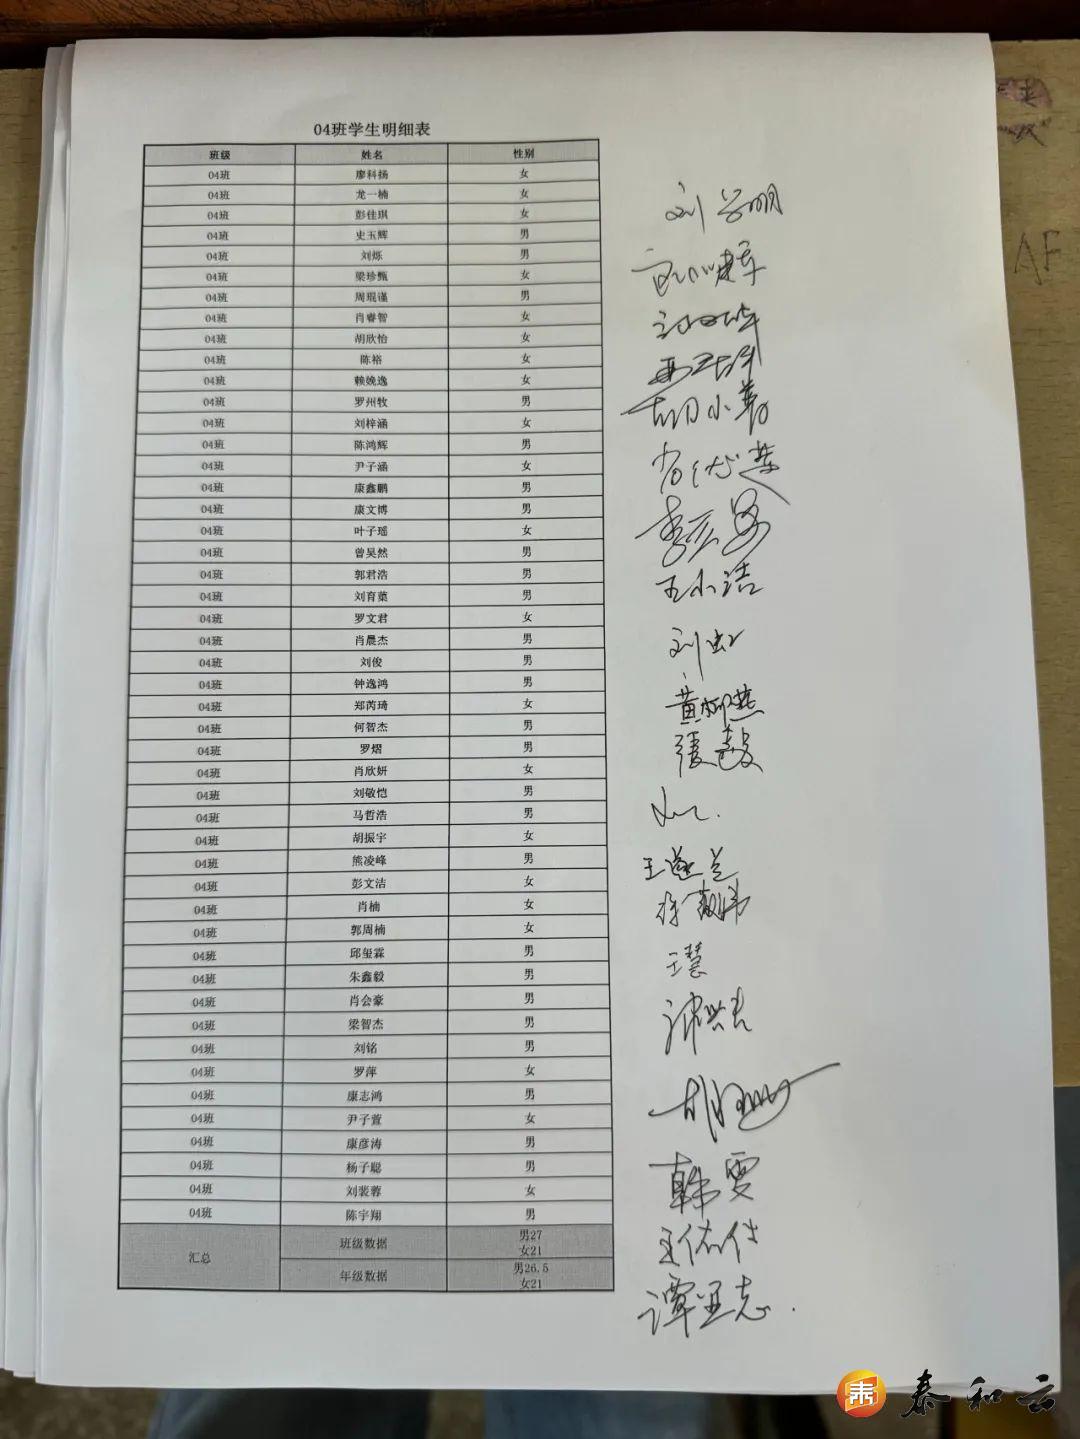 04班学生明细表
班级 姓名 性别
04班 廖科扬 女
04班 龙一楠 女
04班 彭佳琪 女
04班 史玉辉 男
04班 刘烁 男
04班 梁珍甄 女
04班 周琨谨 男
04班 肖睿智 女
04班 胡欣怡 女
04班 陈裕 女
04班 赖娩逸 女
04班 罗州牧 男
04班 刘梓涵 女
04班 陈鸿辉 男
04班 尹子涵 女
04班 康鑫鹏 男
04班 康文博 男
04班 叶子瑶 女
04班 曾昊然 男
04班 郭君浩 男
04班 刘育蕖 男
04班 罗文君 女
04班 肖晨杰 男
04班 刘俊 男
04班 钟逸鸿 男
04班 郑芮琦 女
04班 何智杰 男
04班 罗熠 男
04班 肖欣妍 女
04班 刘敬恺 男
04班 马哲浩 男
04班 胡振宇 女
04班 熊凌峰 男
04班 彭文洁 女
04班 肖楠 女
04班 郭周楠 女
04班 邱玺霖 男
04班 朱鑫毅 男
04班 肖会豪 男
04班 梁智杰 男
04班 刘铭 男
04班 罗萍 女
04班 康志鸿 男
04班 尹子萱 女
04班 康彦涛 男
04班 杨子聪 男
04班 刘裴蓉 女
04班 陈宇翔 男
汇总 班级数据 男27
女21
年级数据 男26.5
女21
胡小
王小洁
刘虹
黄柳燕
王慧
韩雯
王佑仕
谭宜志
泰和云
AF